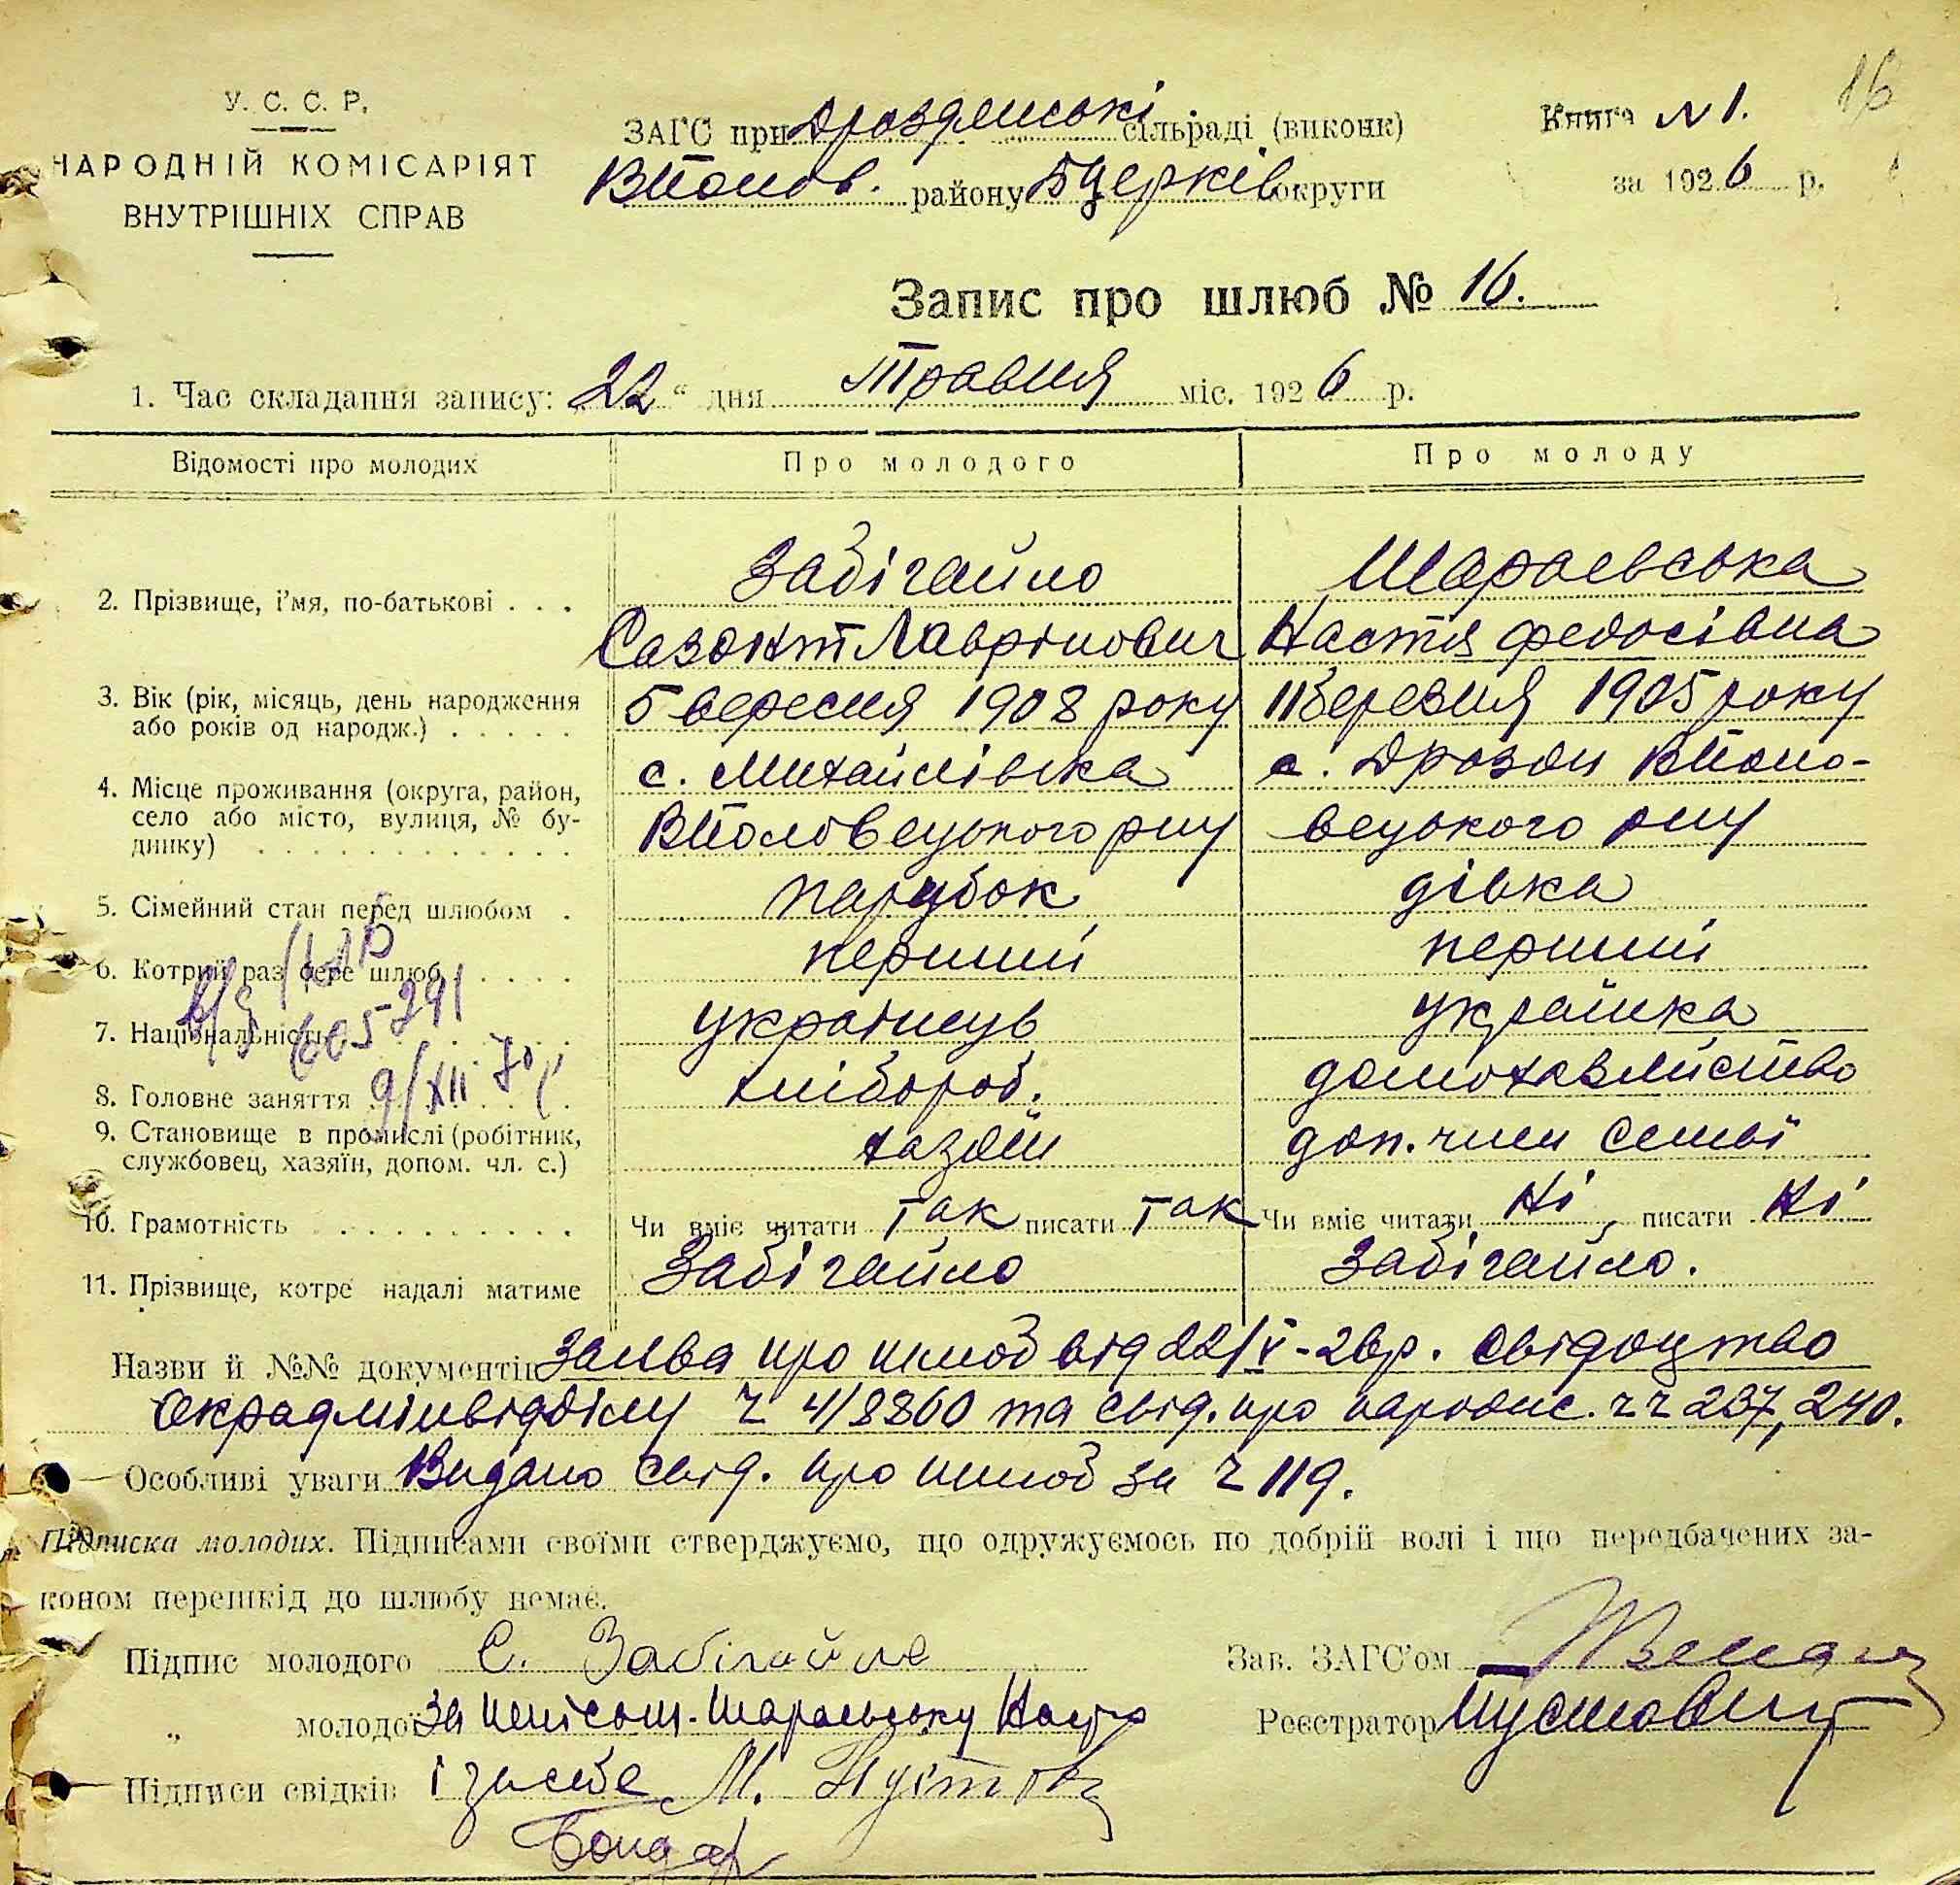 16
У. С. С. Р.
НАРОДНІЙ КОМІСАРІЯТ
ВНУТРІШНІХ СПРАВ
ЗАГС при Дроздянські сільраді (виконк)
ВПолов. району БЦерків округи
Книга № 1.
за 1926 р.
Запис про шлюб № 16.
1. Час складання запису: 22 " дня Травня міс. 1926 р.
Відомості про молодих
Про молодого
Про молоду
2. Прізвище, і'мя, по-батькові . . .
Забігайло
Сазонт Лаврінович
Шараевська
Настя Федосівна
3. Вік (рік, місяць, день народження
або років од народж.) . . . . .
5 вересня 1908 року
11 березня 1905 року
4. Місце проживання (округа, район,
село або місто, вулиця, № бу-
динку) . . . . . . . . . . . .
с. Михайлівка
ВПоловецького рну
с. Дрозди ВПоло-
вецького рну
5. Сімейний стан перед шлюбом .
парубок
дівка
6. Котрий раз бере шлюб . . . .
перший
перший
7. Національність . . . . . . . .
українець
українка
605291
8. Головне заняття . . . . . . .
хлібороб.
домохазяйство
9/XII 70
9. Становище в промислі (робітник,
службовец, хазяїн, допом. чл. с.)
хазяїн
доп. член семьї
10. Грамотність . . . . . . . . . .
Чи вміє читати так писати так
Чи вміє читати Ні, писати Ні
11. Прізвище, котре надалі матиме
Забігайло
Забігайло.
Назви й №№ документів Заява про шлюб від 22/V-26р. Свідоцтво
Окрадмінвідділу ч 4/8860 та свід. про народж. чч 237, 240.
Особливі уваги Видано свід. про шлюб за ч 119.
Підписка молодих. Підписами своїми стверджуємо, що одружуємось по добрій волі і що передбачених за-
коном перешкід до шлюбу немає.
Підпис молодого С. Забігайло
Зав. ЗАГС'ом
„ молодої За Шараевську Настю
Реєстратор Пустовіт
Підписи свідків і за себе М. Пустовіт
Бондар